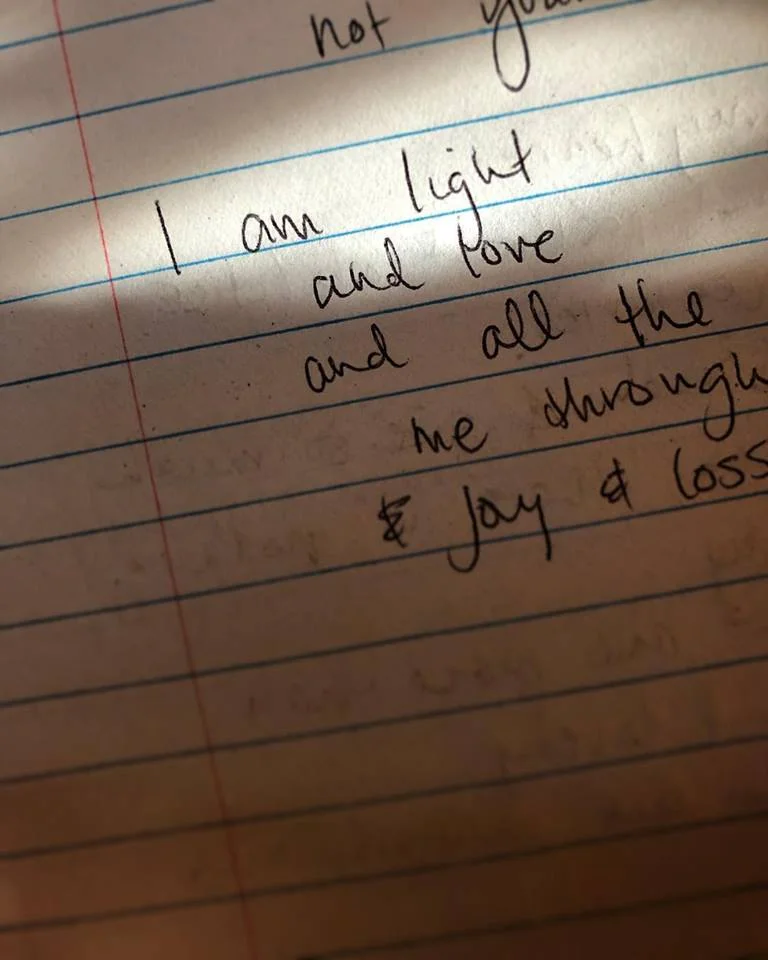 not
I am light
and love
and all the
me through
& joy & loss